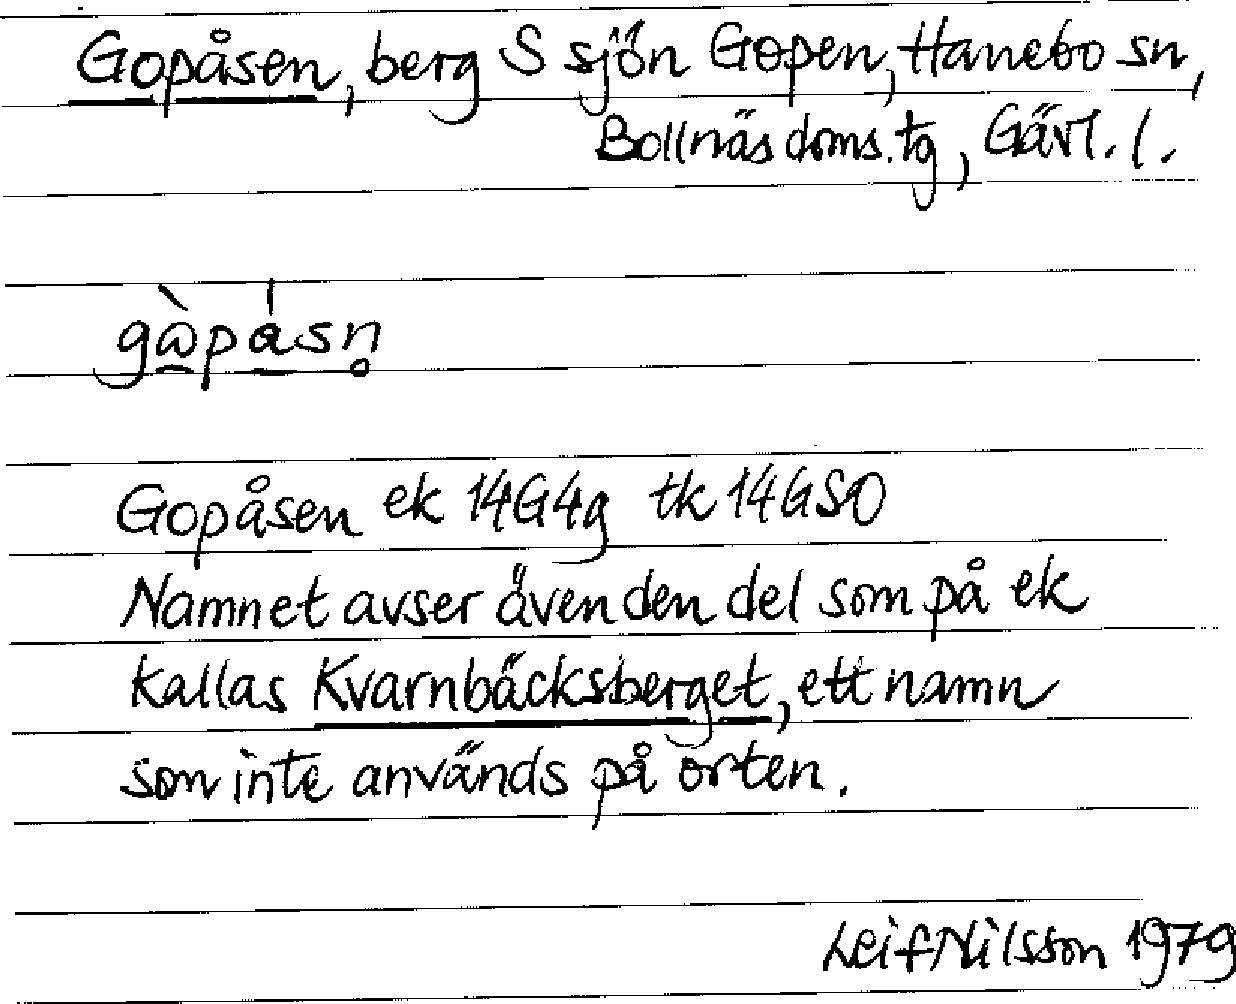 Gopåsen, berg S sjön Gopen, Hanebo sn,
Bollnäs doms.tg, Gävl. l.
Gopåsen ek 14G4g tk 14GSO
Namnet avser även den del som på ek
kallas Kvarnbäcksberget, ett namn
som inte används på orten.
Leif Nilsson 1979